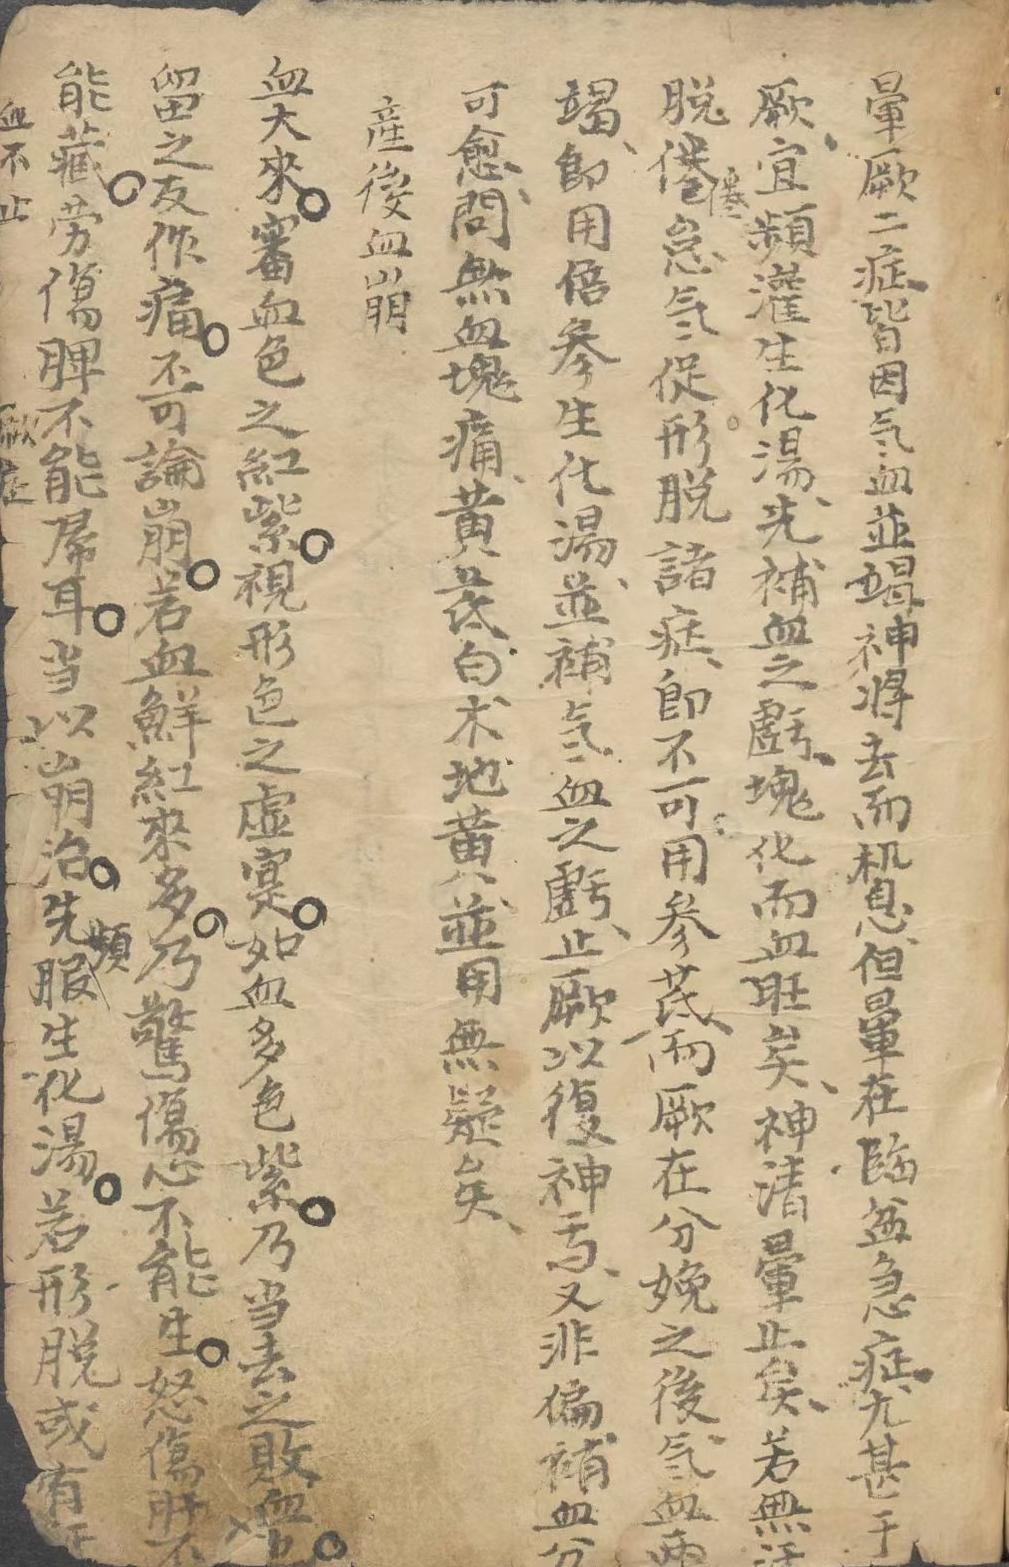 暈厥二症皆因気血並竭神将去而机息但暈在臨盆急症尤甚于
厥宜頻灌生化湯先補血之虧塊化而血旺矣神清暈止矣若無
脱倦怠気促形脱諸症即不可用参芪而厥在分娩之後気血両
倦
竭即用倍参生化湯並補気血之虧止厥以復神焉又非偏補血分
可愈問無血塊痛黄芪白术地黄並用無疑矣
産後血崩
血大來審血色之紅紫視形色之虚寔如血多色紫乃当去之敗血也
留之反作痛不可論崩若血鮮紅來多乃驚傷心不能生怒傷肝不
能藏劳傷脾不能属耳当以崩治先服生化湯若形脱或有
頻
血不止
厥症